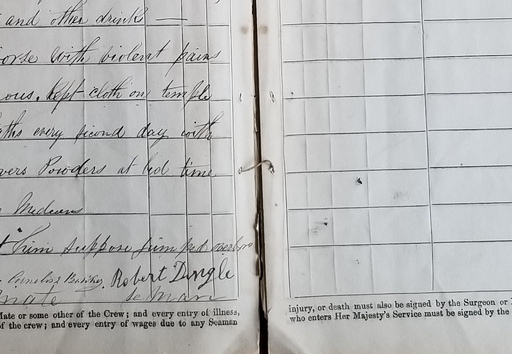 and other drink —
orse with violent pains
ous, kept cloth on temple
ths every second day with
vers Powders at bed time
Medicine
him suppose jumped overbo
Robert Dingle
Mate Seaman
Mate or some other of the Crew; and every entry of illness,
of the crew; and every entry of wages due to any Seaman
injury, or death must also be signed by the Surgeon or
who enters Her Majesty's Service must be signed by the